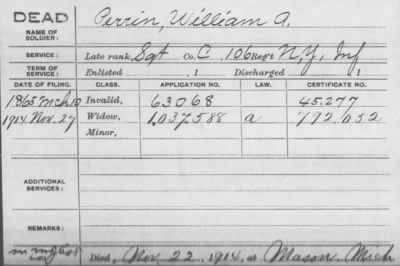 DEAD Perrin, William A.
NAME OF SOLDIER:
SERVICE: Late rank, Sgt Co. C, 106 Reg't N.Y. Inf
TERM OF SERVICE: Enlisted , 1 Discharged , 1
DATE OF FILING. CLASS. APPLICATION NO. LAW. CERTIFICATE NO.
1865 Mch 10 Invalid, 63068 45,277
1914 Nov. 27 Widow, 1,037,588 a 792,052
Minor,
ADDITIONAL SERVICES:
REMARKS:
Died, Nov. 22, 1914, at Mason, Mich